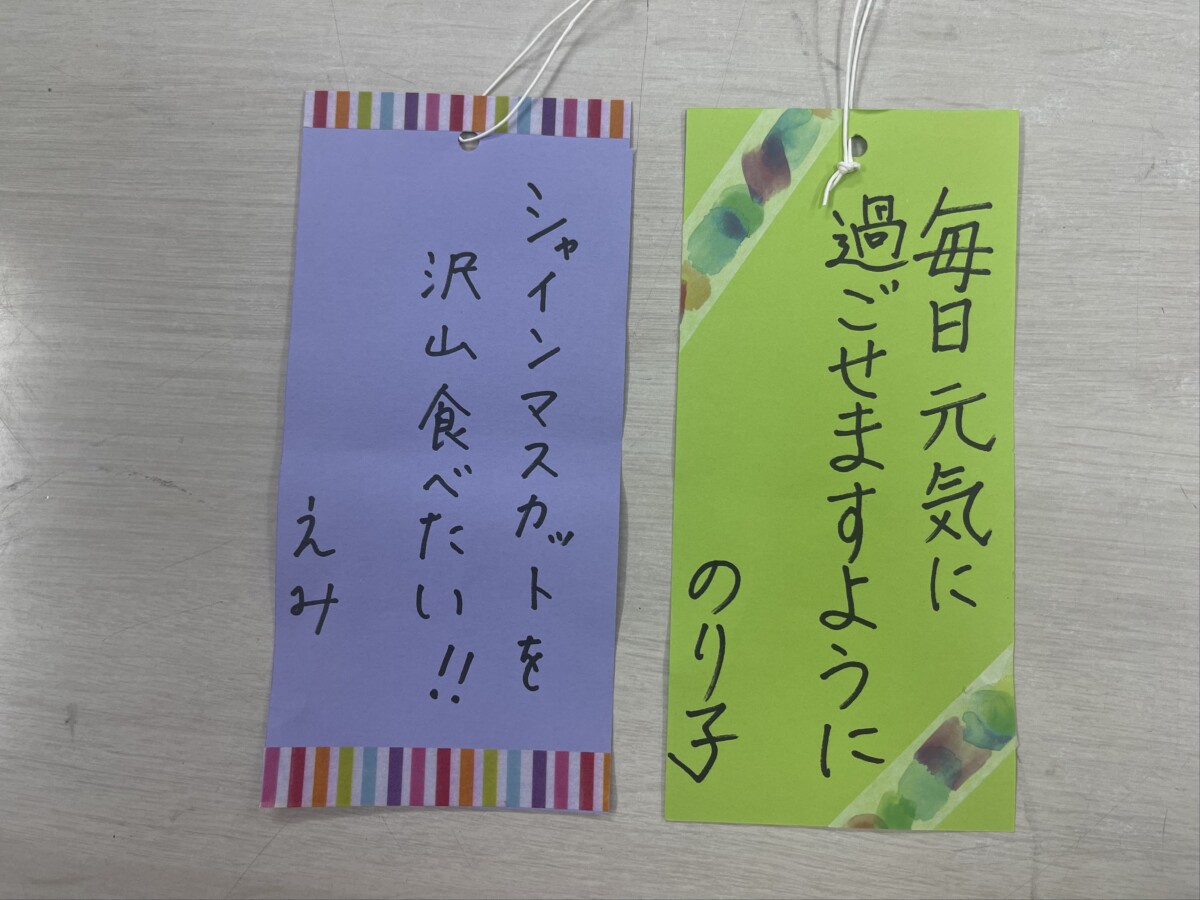 シャインマスカットを
沢山食べたい!!
えみ
毎日元気に
過ごせますように
のり子